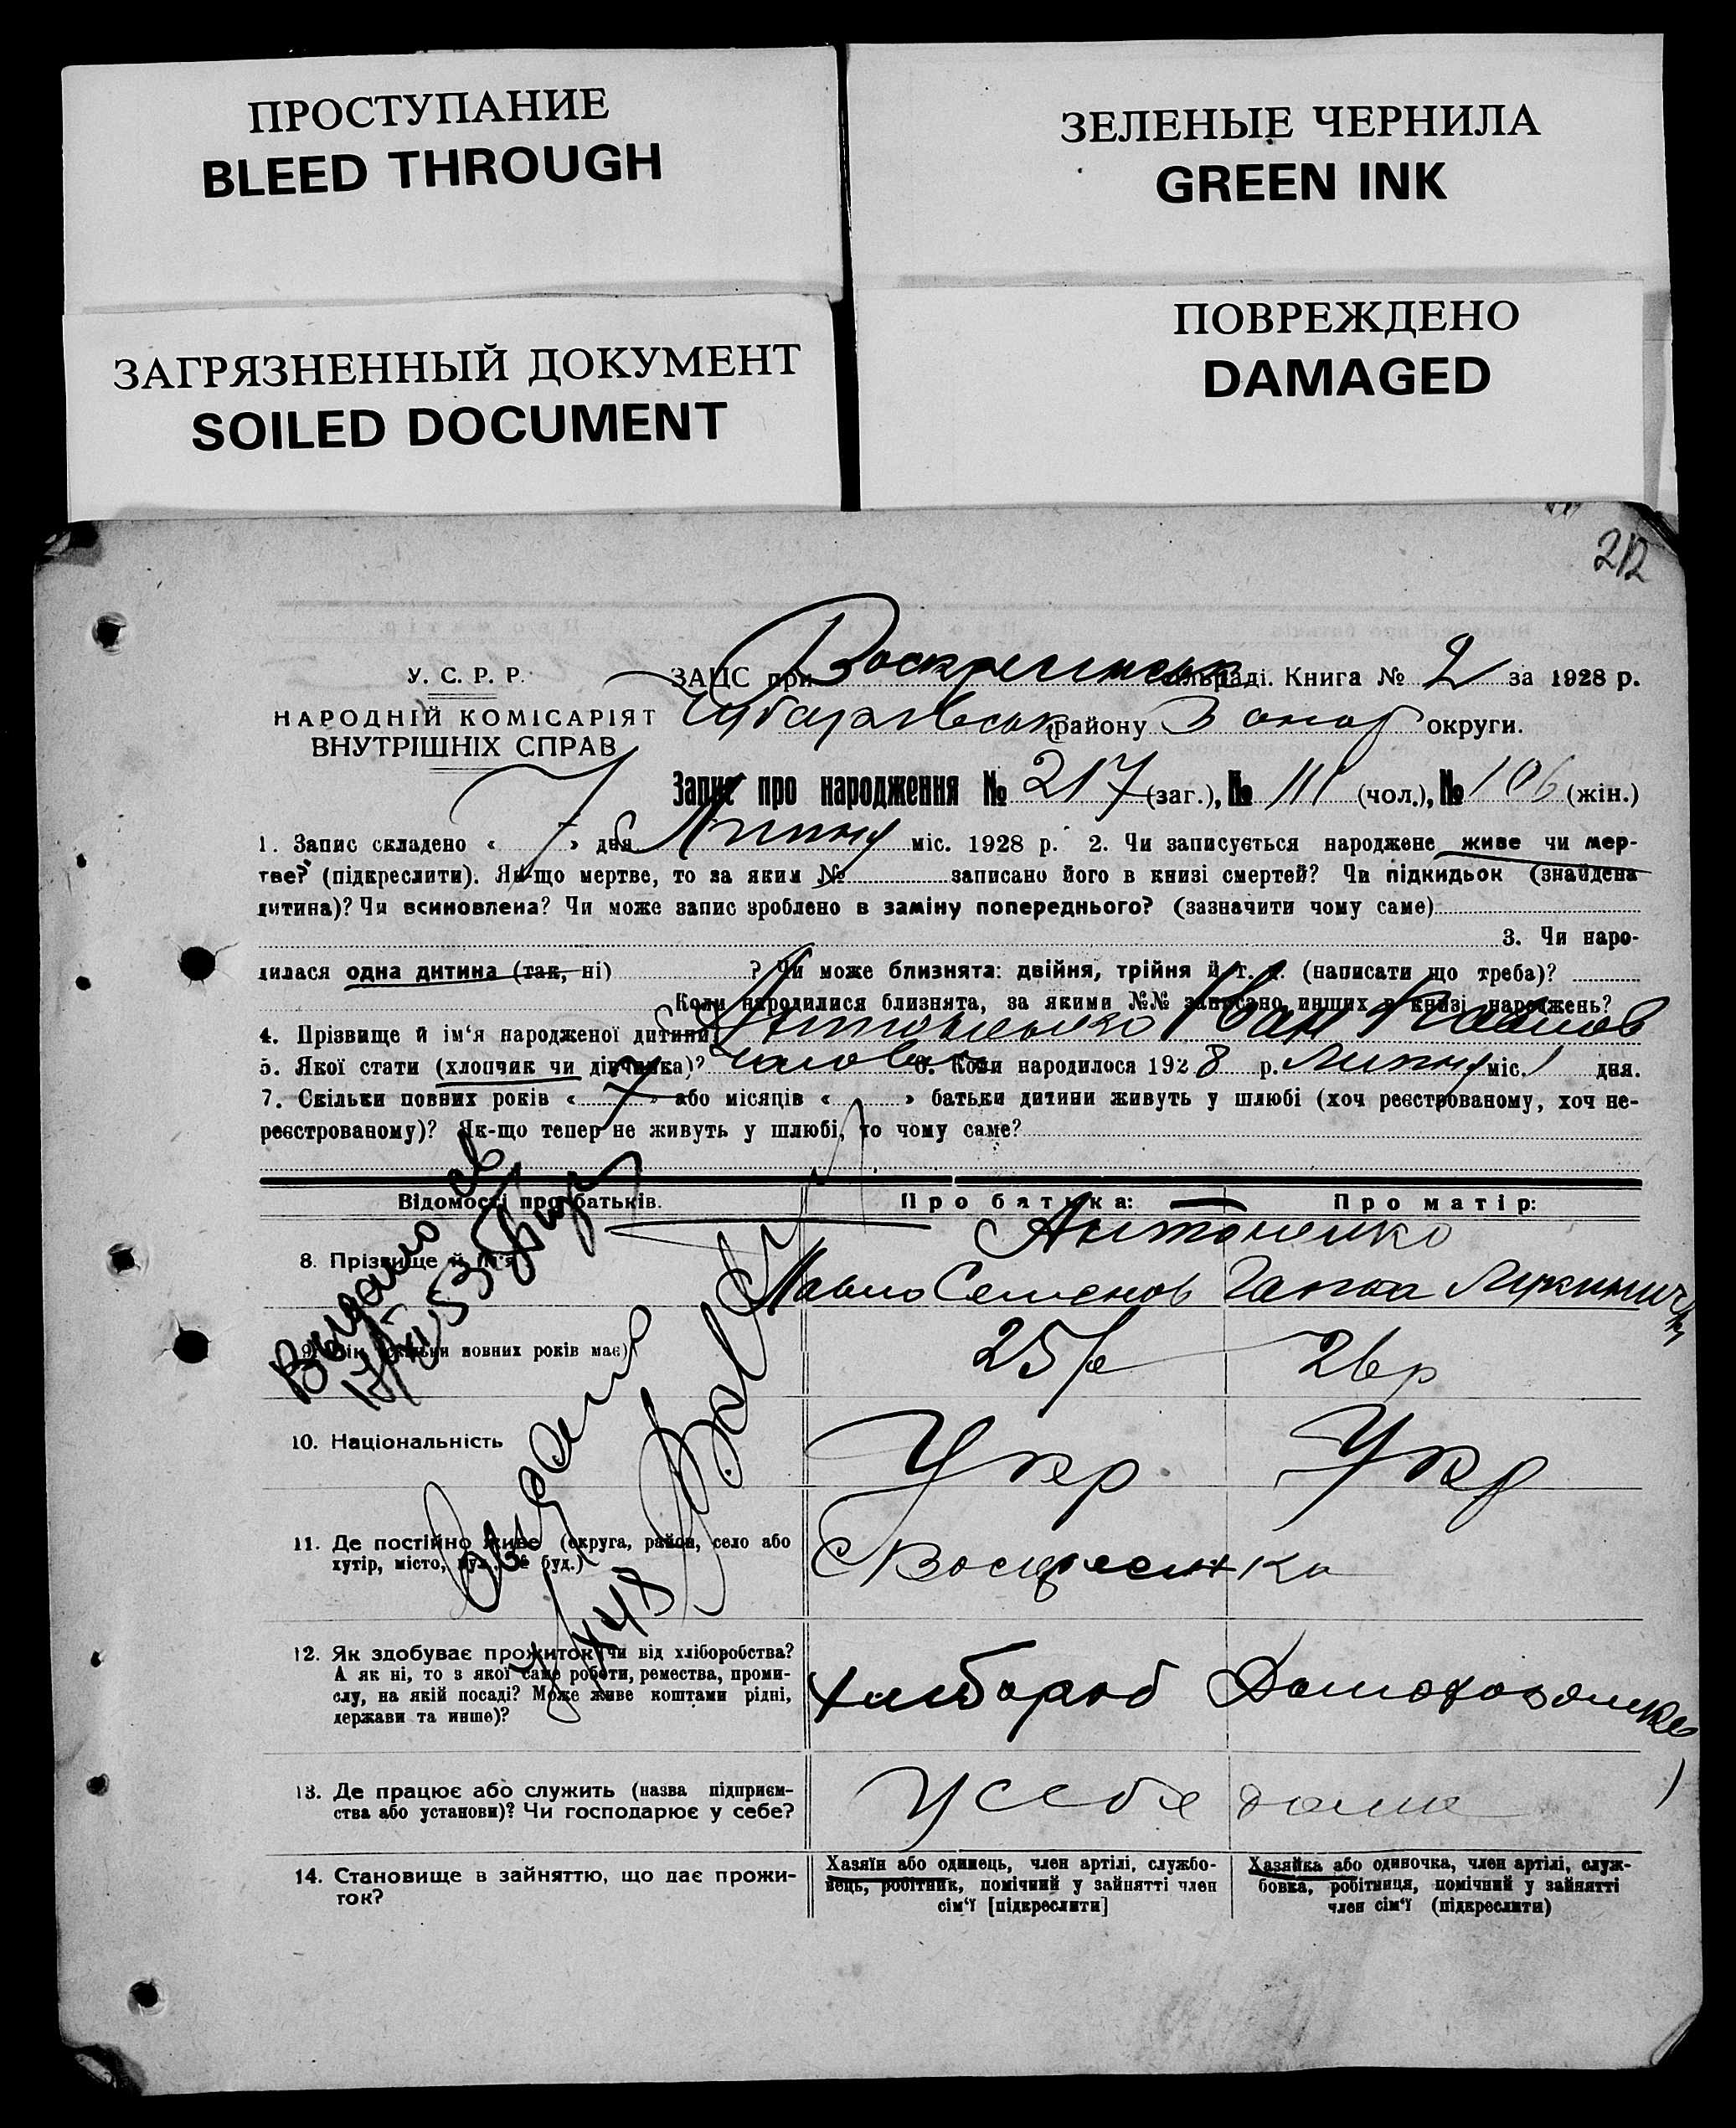 ПРОСТУПАНИЕ
BLEED THROUGH
ЗЕЛЕНЫЕ ЧЕРНИЛА
GREEN INK
ЗАГРЯЗНЕННЫЙ ДОКУМЕНТ
SOILED DOCUMENT
ПОВРЕЖДЕНО
DAMAGED
212
У. С. Р. Р.
НАРОДНІЙ КОМІСАРІЯТ
ВНУТРІШНІХ СПРАВ
ЗАЦС при Воскресенськ сільраді. Книга № 2 за 1928 р.
району Запор округи.
Запис про народження № 217 (заг.), № 111 (чол.), № 106 (жін.)
1. Запис складено « 7 » дня Липня міс. 1928 р. 2. Чи записується народжене живе чи мер-
тве? (підкреслити). Як-що мертве, то за яким № записано його в книзі смертей? Чи підкидьок (знайдена
дитина)? Чи всиновлена? Чи може запис зроблено в заміну попереднього? (зазначити чому саме)
3. Чи наро-
дилася одна дитина (так, ні) ? Чи може близнята: двійня, трійня й т. і. (написати що треба)?
Коли народилися близнята, за якими №№ записано инших в книзі народжень?
4. Прізвище й ім‘я народженої дитини Антоненко Іван Павлов
5. Якої стати (хлопчик чи дівчинка)? чолов 6. Коли народилося 1928 р. Липня міс. 1 дня.
7. Скільки повних років « 7 » або місяців « » батьки дитини живуть у шлюбі (хоч реєстрованому, хоч не-
реєстрованому)? Як-що тепер не живуть у шлюбі, то чому саме?
Відомості про батьків. Про батька: Про матір:
Антоненко
8. Прізвище й ім‘я Павло Семенов Ганна
9. Вік (скільки повних років має) 25 р 26 р
10. Національність Укр Укр
11. Де постійно живе (округа, район, село або
хутір, місто, вул., № буд.) С Воскресенка
12. Як здобуває прожиток (чи від хліборобства?
А як ні, то з якої саме роботи, ремества, проми-
слу, на якій посаді? Може живе коштами рідні,
держави та инше)? хлібороб Домохозяйка
13. Де працює або служить (назва підприєм-
ства або установи)? Чи господарює у себе? У себе дома
14. Становище в зайняттю, що дає прожи-
ток?
Хазяїн або одинець, член артілі, службо-
вець, робітник, помічний у зайнятті член
сім‘ї [підкреслити]
Хазяйка або одиночка, член артілі, служ-
бовка, робітниця, помічний у зайнятті
член сім‘ї (підкреслити)
Видано
Видано